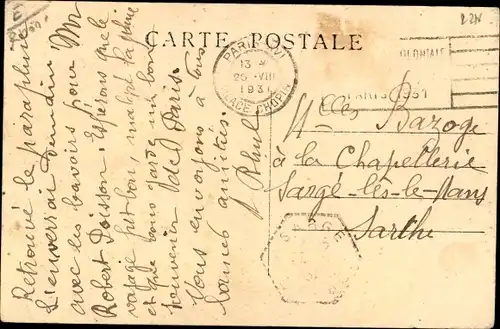 CARTE POSTALE
PARIS XVI
13 H
25 VIII
1931
PLACE CHOPIN
COLONIALE
PARIS 1931
Retrouvé le parapluie
L'enverrai demain
avec les bavoirs pour Mr
Robert Poisson. Espérons que le
voyage fut bon, malgré la pluie
et que vous garde un bon
souvenir de Paris.
Vous envoyons à tous
bonnes amitiés.
Mlles Bazoge
à la Chapellerie
Sargé-lès-le-Mans
Sarthe
SARGE